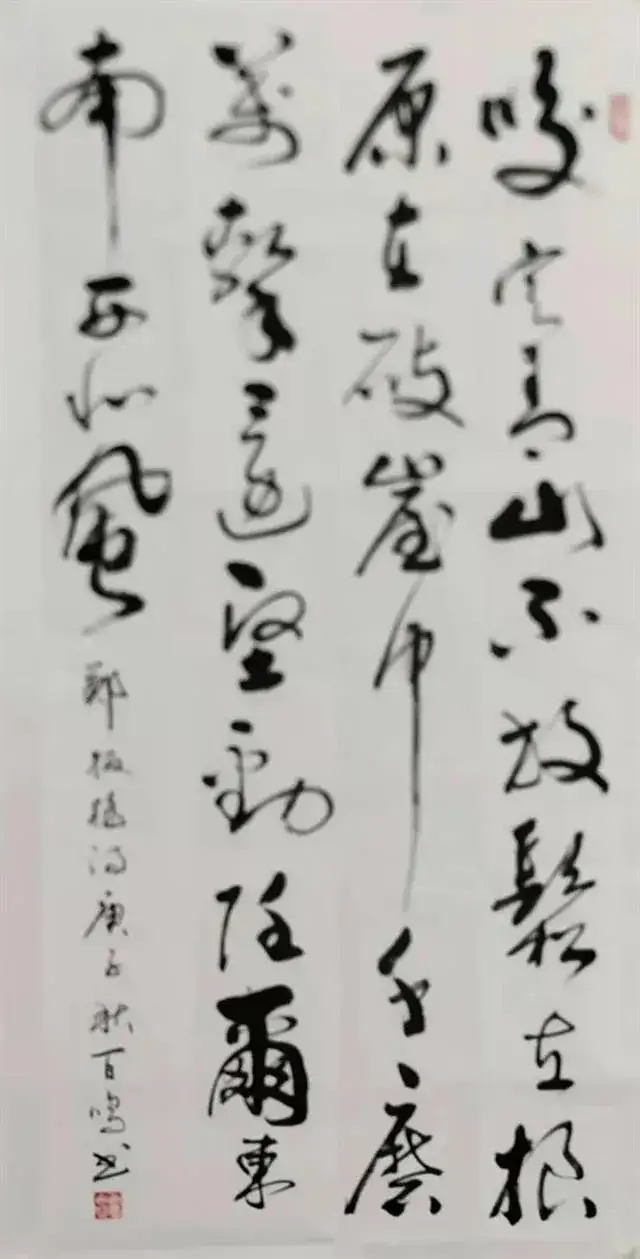 咬定青山不放鬆立根
原在破崖中千磨
萬擊還堅勁任爾東
南西北風
鄭板橋詩庚子秋百鳴书